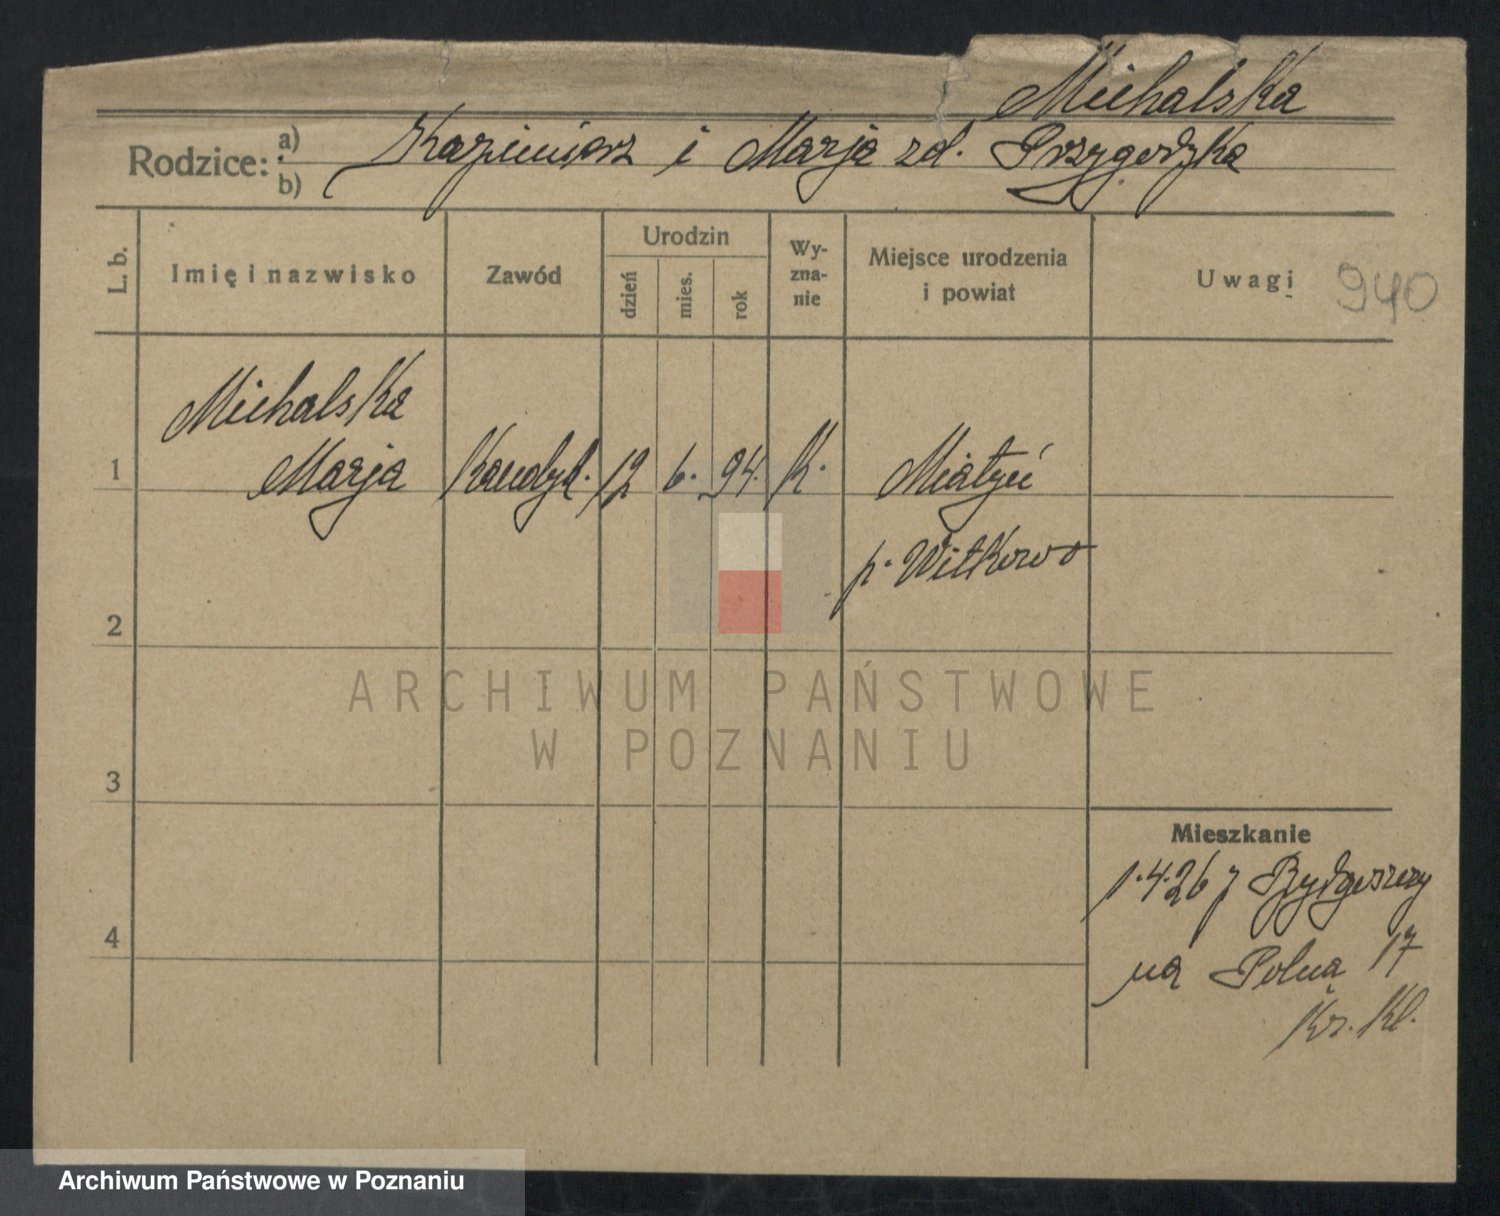 Michalska
Rodzice: a) b) Kazimierz i Marja zd. Przygodzka
L. b.
Imię i nazwisko
Zawód
Urodzin
dzień
mies.
rok
Wy-
zna-
nie
Miejsce urodzenia
i powiat
Uwagi
940
1
Michalska
Marja
12
6.
94.
K.
p. Witkowo
2
ARCHIWUM PAŃSTWOWE
W POZNANIU
3
Mieszkanie
1.4.26 z Bydgoszczy
4
na Polną 17
Archiwum Państwowe w Poznaniu